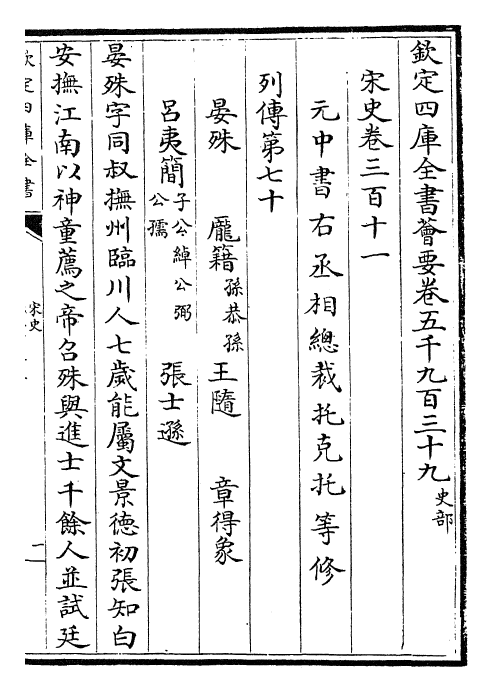 欽定四庫全書薈要卷五千九百三十九史部
宋史卷三百十一
元中書右丞相總裁托克托等修
列傳第七十
晏殊 龐籍孫恭孫 王隨 章得象
呂夷簡子公綽公弼公孺 張士遜
晏殊字同叔撫州臨川人七歲能屬文景德初張知白
安撫江南以神童薦之帝召殊與進士千餘人並試廷
欽定四庫全書
宋史